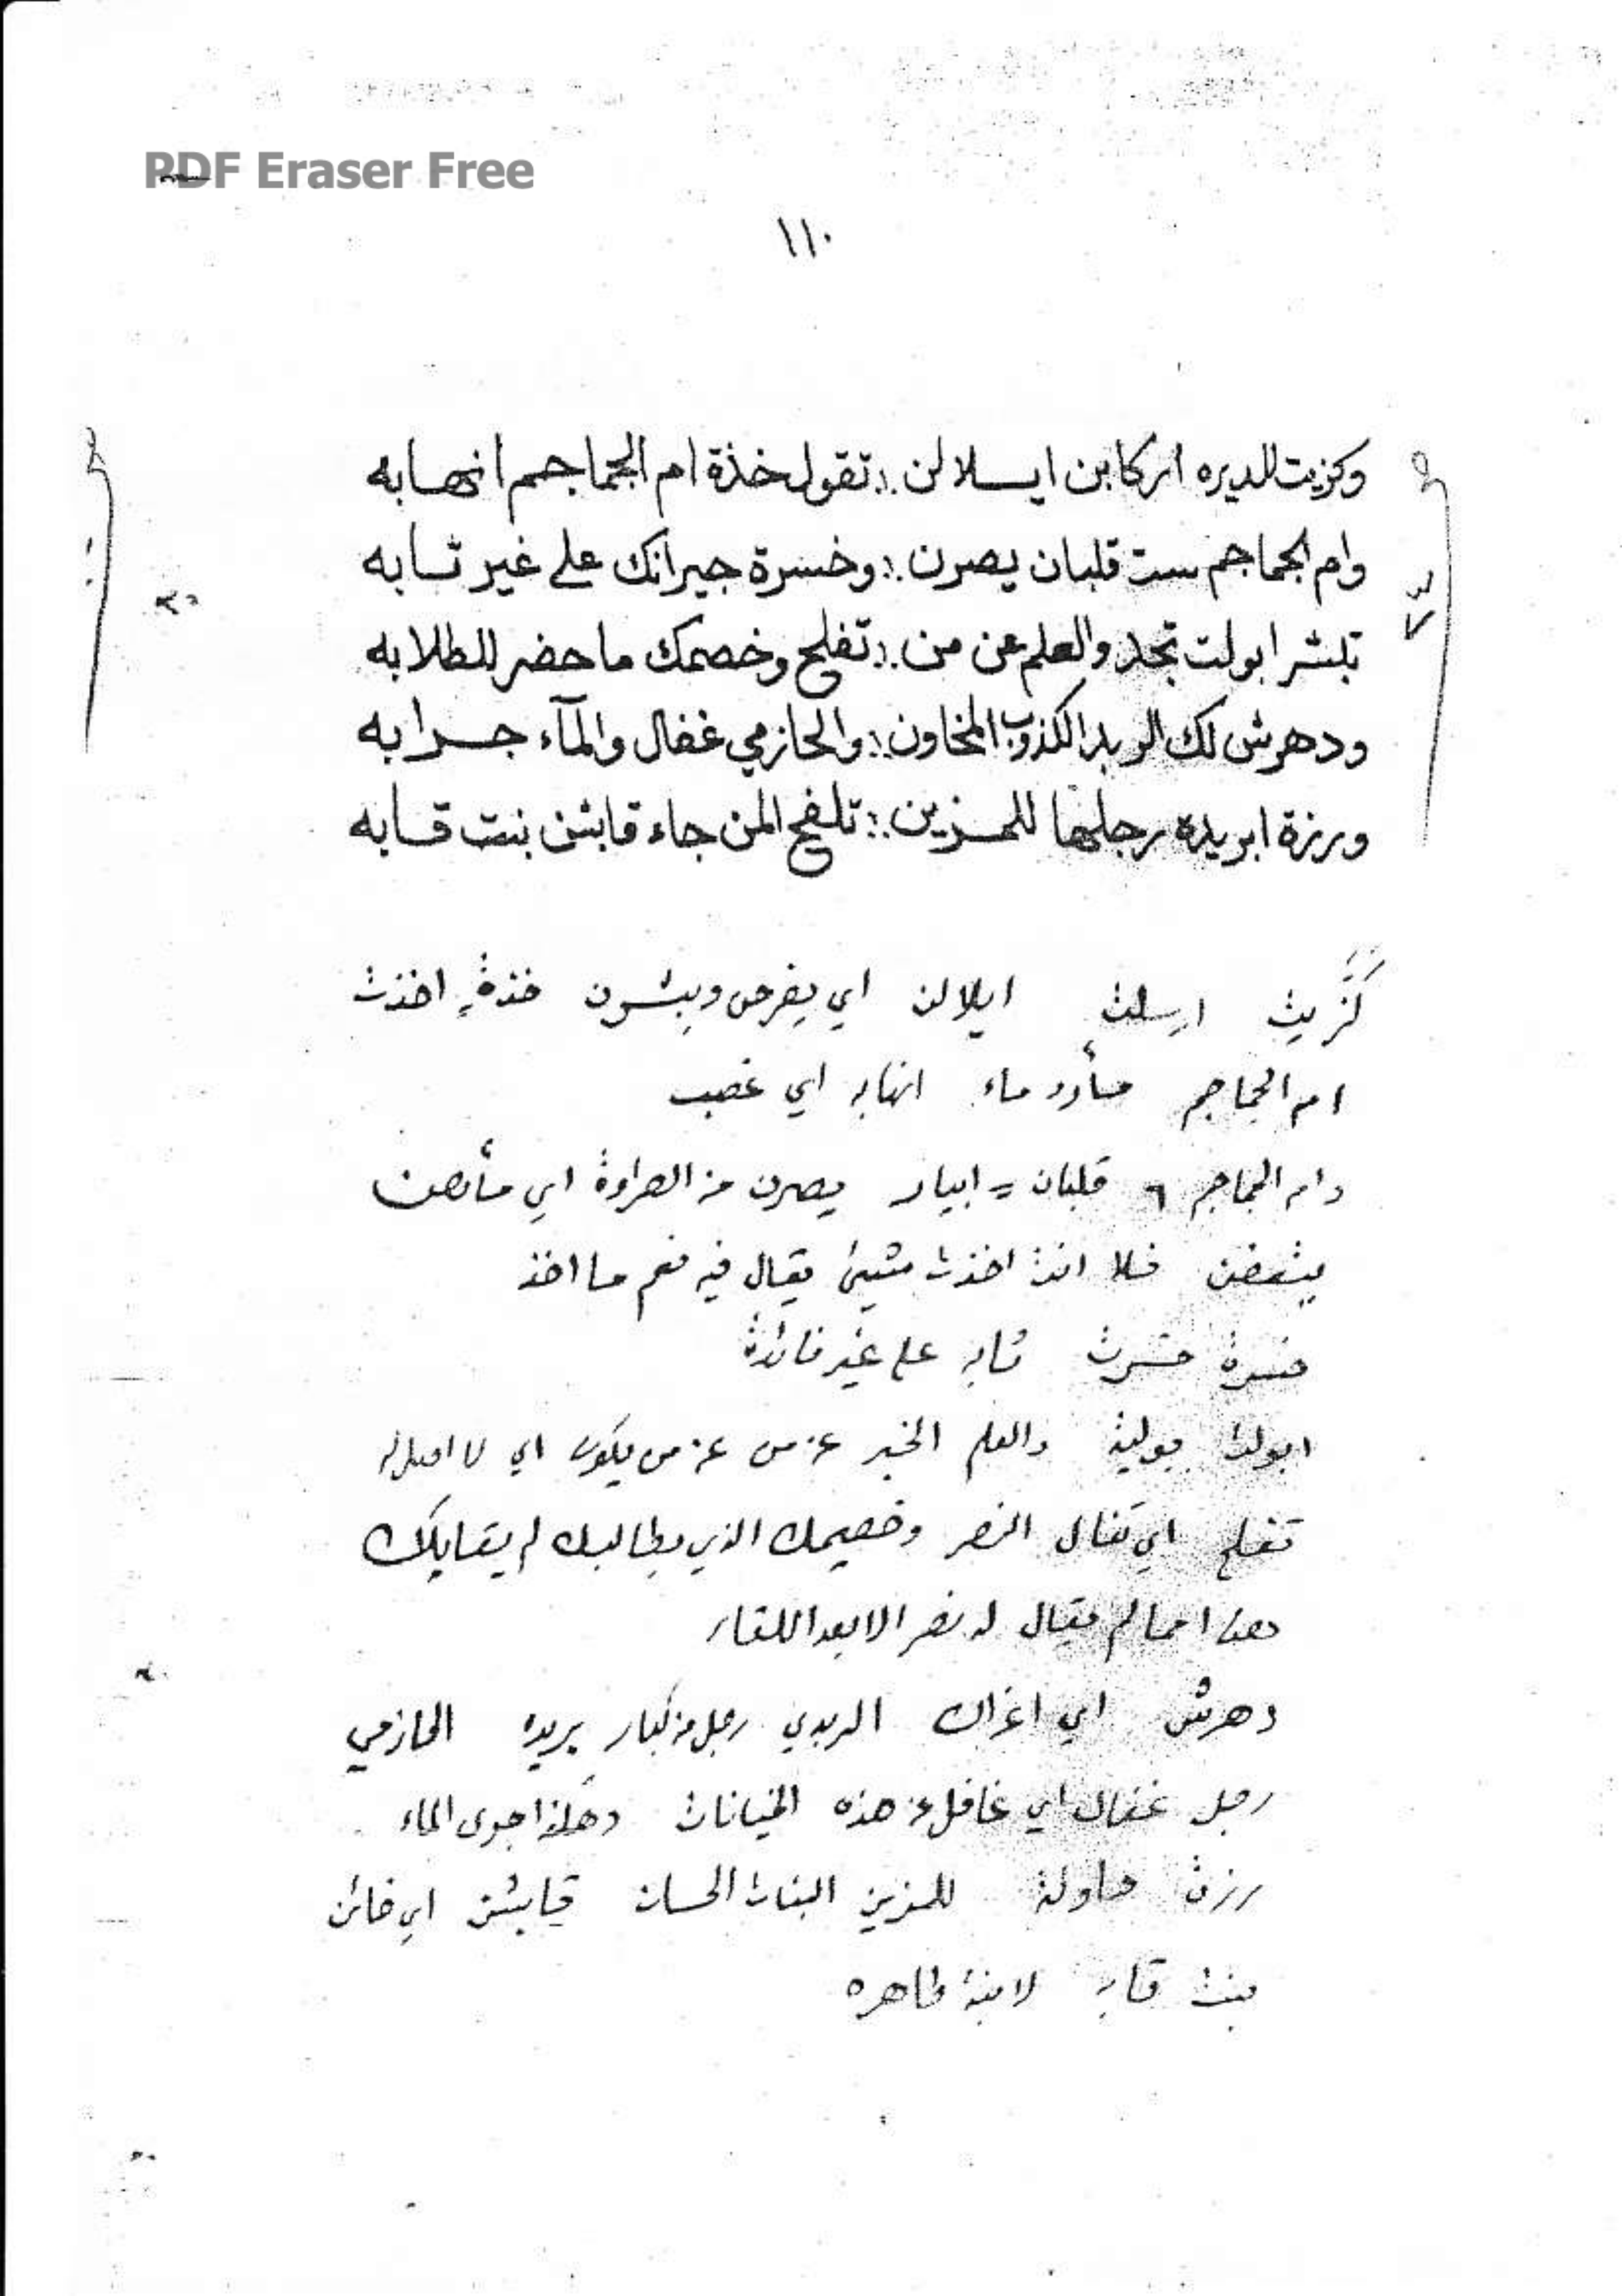 PDF Eraser Free
١١٠
وكزيت للديره اركابن ايسلالن :: تقول خذة ام الجماجم انهابه
وام الجماجم ست قلبان يصرن :: وخسرة جيرانك على غير ثابه
تبشر ابولت نجد والعلم عن من :: تفلح وخصمك ما حضر للطلابه
ودهرش لك الربدا الكذوب المخاون :: والحازمي غفال والمآء جرابه
ورزة ابريده رجلها للمزين :: تلفح المن جاء قابثن بنت قابه
كزيت ارسلت ايلالن اي يفرحن ويبشرن خذة اخذت
ام الجماجم مأرد ماء انهابه اي غصب
وام الجماجم ٦ قلبان = ابيار يصرن من الصراوة اي مأهن
يثعفن فلا انت اخذت شيئ يقال فيه نعم ما اخذ
خسرة خسرت ثابه على غير فائدة
ابولت بولية والعلم الخبر عن من عن من يكون اي لا اصل له
تفلح اي تنال النصر وخصيمك الذي يطالبك لم يقابلك
لم يقال له نصر الا بعد اللقاء
دهرش اي اغراك الربدي رجل من كبار بريده الحازمي
رجل غفال اي غافل عن هذه الخيانات وهكذا جرى الماء
رزة محاولة للمزين البنات الحسان قابثن اي خائن
بنت قابه لابنة طاهره